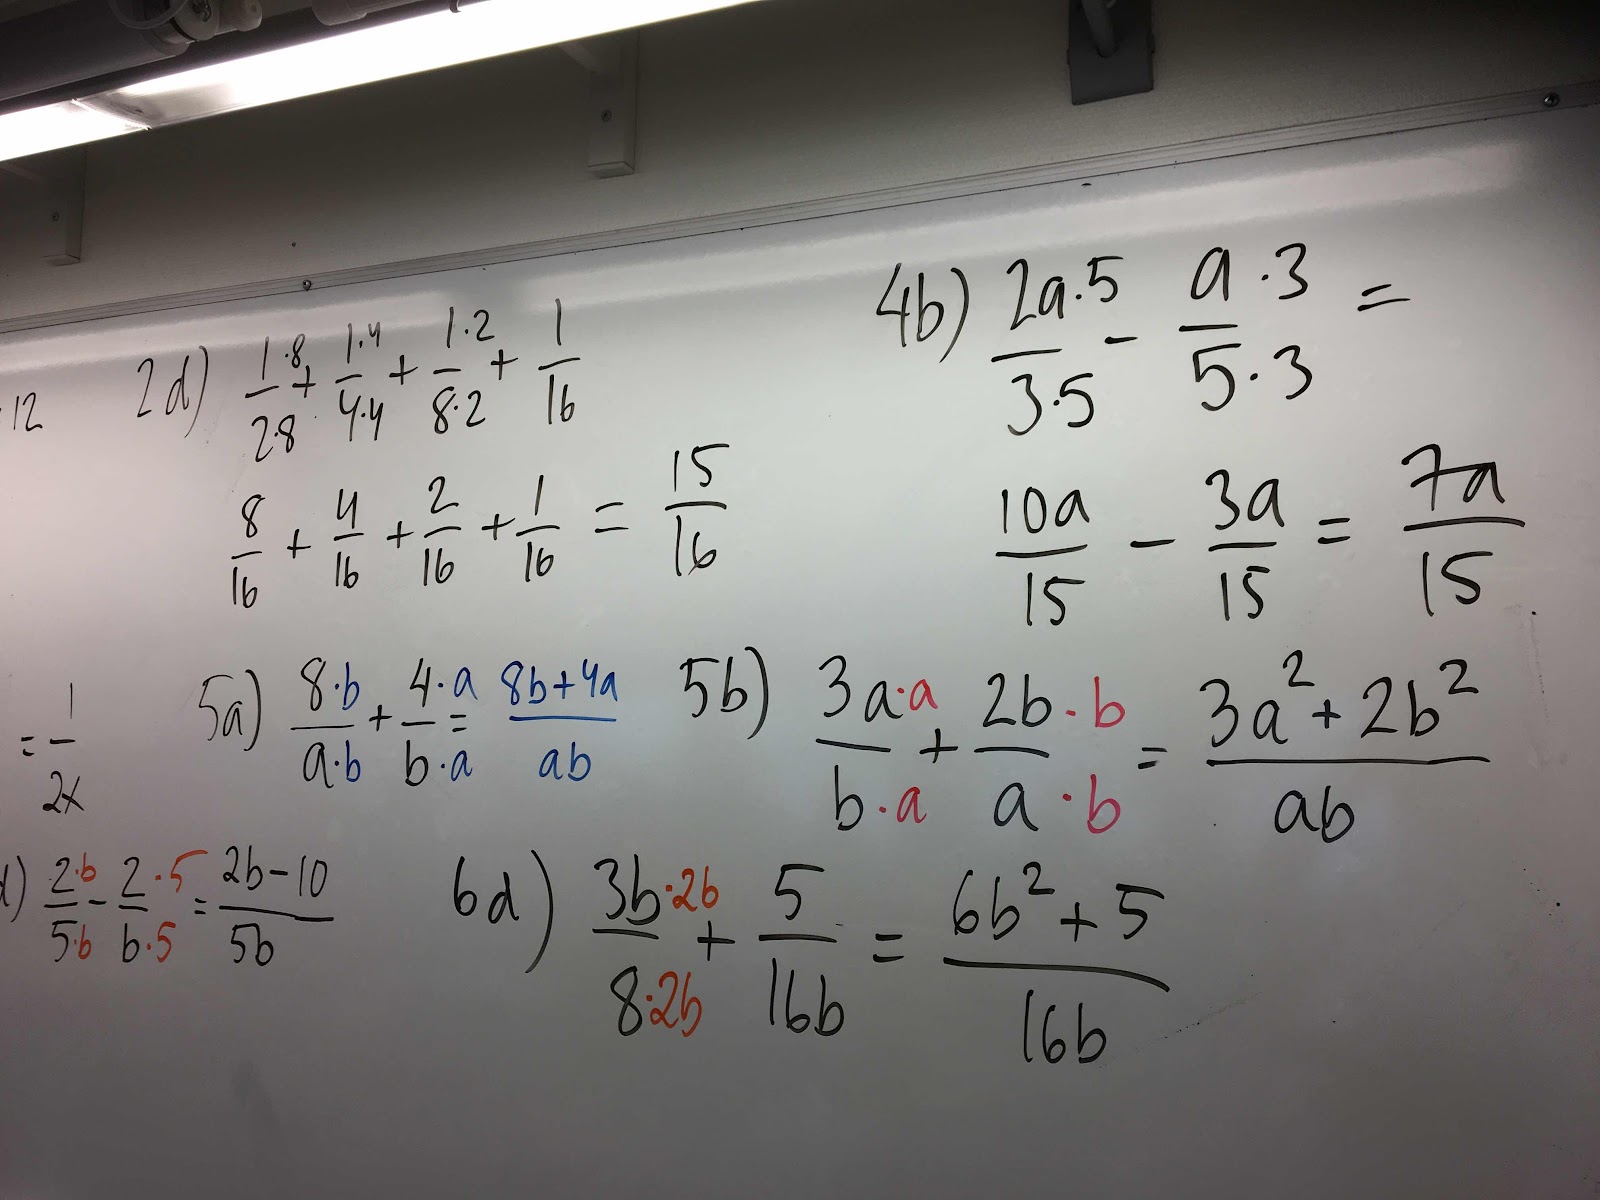 2d) 1·8/2·8 + 1·4/4·4 + 1·2/8·2 + 1/16
·12
8/16 + 4/16 + 2/16 + 1/16 = 15/16
4b) 2a·5/3·5 - a·3/5·3 =
10a/15 - 3a/15 = 7a/15
= 1/2x
5a) 8·b/a·b + 4·a/b·a = 8b+4a/ab
5b) 3a·a/b·a + 2b·b/a·b = 3a²+2b²/ab
d) 2·b/5·b - 2·5/b·5 = 2b-10/5b
6d) 3b·2b/8·2b + 5/16b = 6b²+5/16b